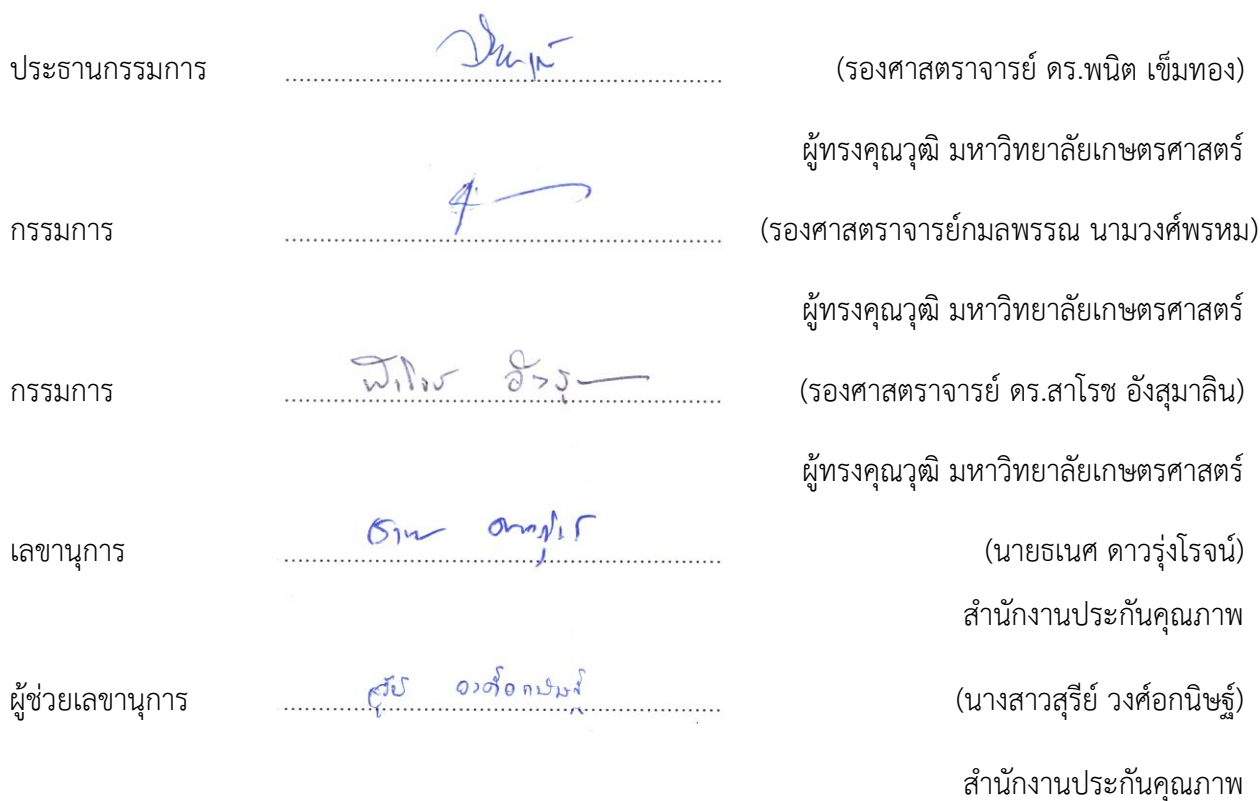 ประธานกรรมการ (รองศาสตราจารย์ ดร.พนิต เข็มทอง)
ผู้ทรงคุณวุฒิ มหาวิทยาลัยเกษตรศาสตร์
กรรมการ (รองศาสตราจารย์กมลพรรณ นามวงศ์พรหม)
ผู้ทรงคุณวุฒิ มหาวิทยาลัยเกษตรศาสตร์
กรรมการ (รองศาสตราจารย์ ดร.สาโรช อังสุมาลิน)
ผู้ทรงคุณวุฒิ มหาวิทยาลัยเกษตรศาสตร์
เลขานุการ (นายธเนศ ดาวรุ่งโรจน์)
สำนักงานประกันคุณภาพ
ผู้ช่วยเลขานุการ สุรีย์ วงศ์อกนิษฐ์ (นางสาวสุรีย์ วงศ์อกนิษฐ์)
สำนักงานประกันคุณภาพ